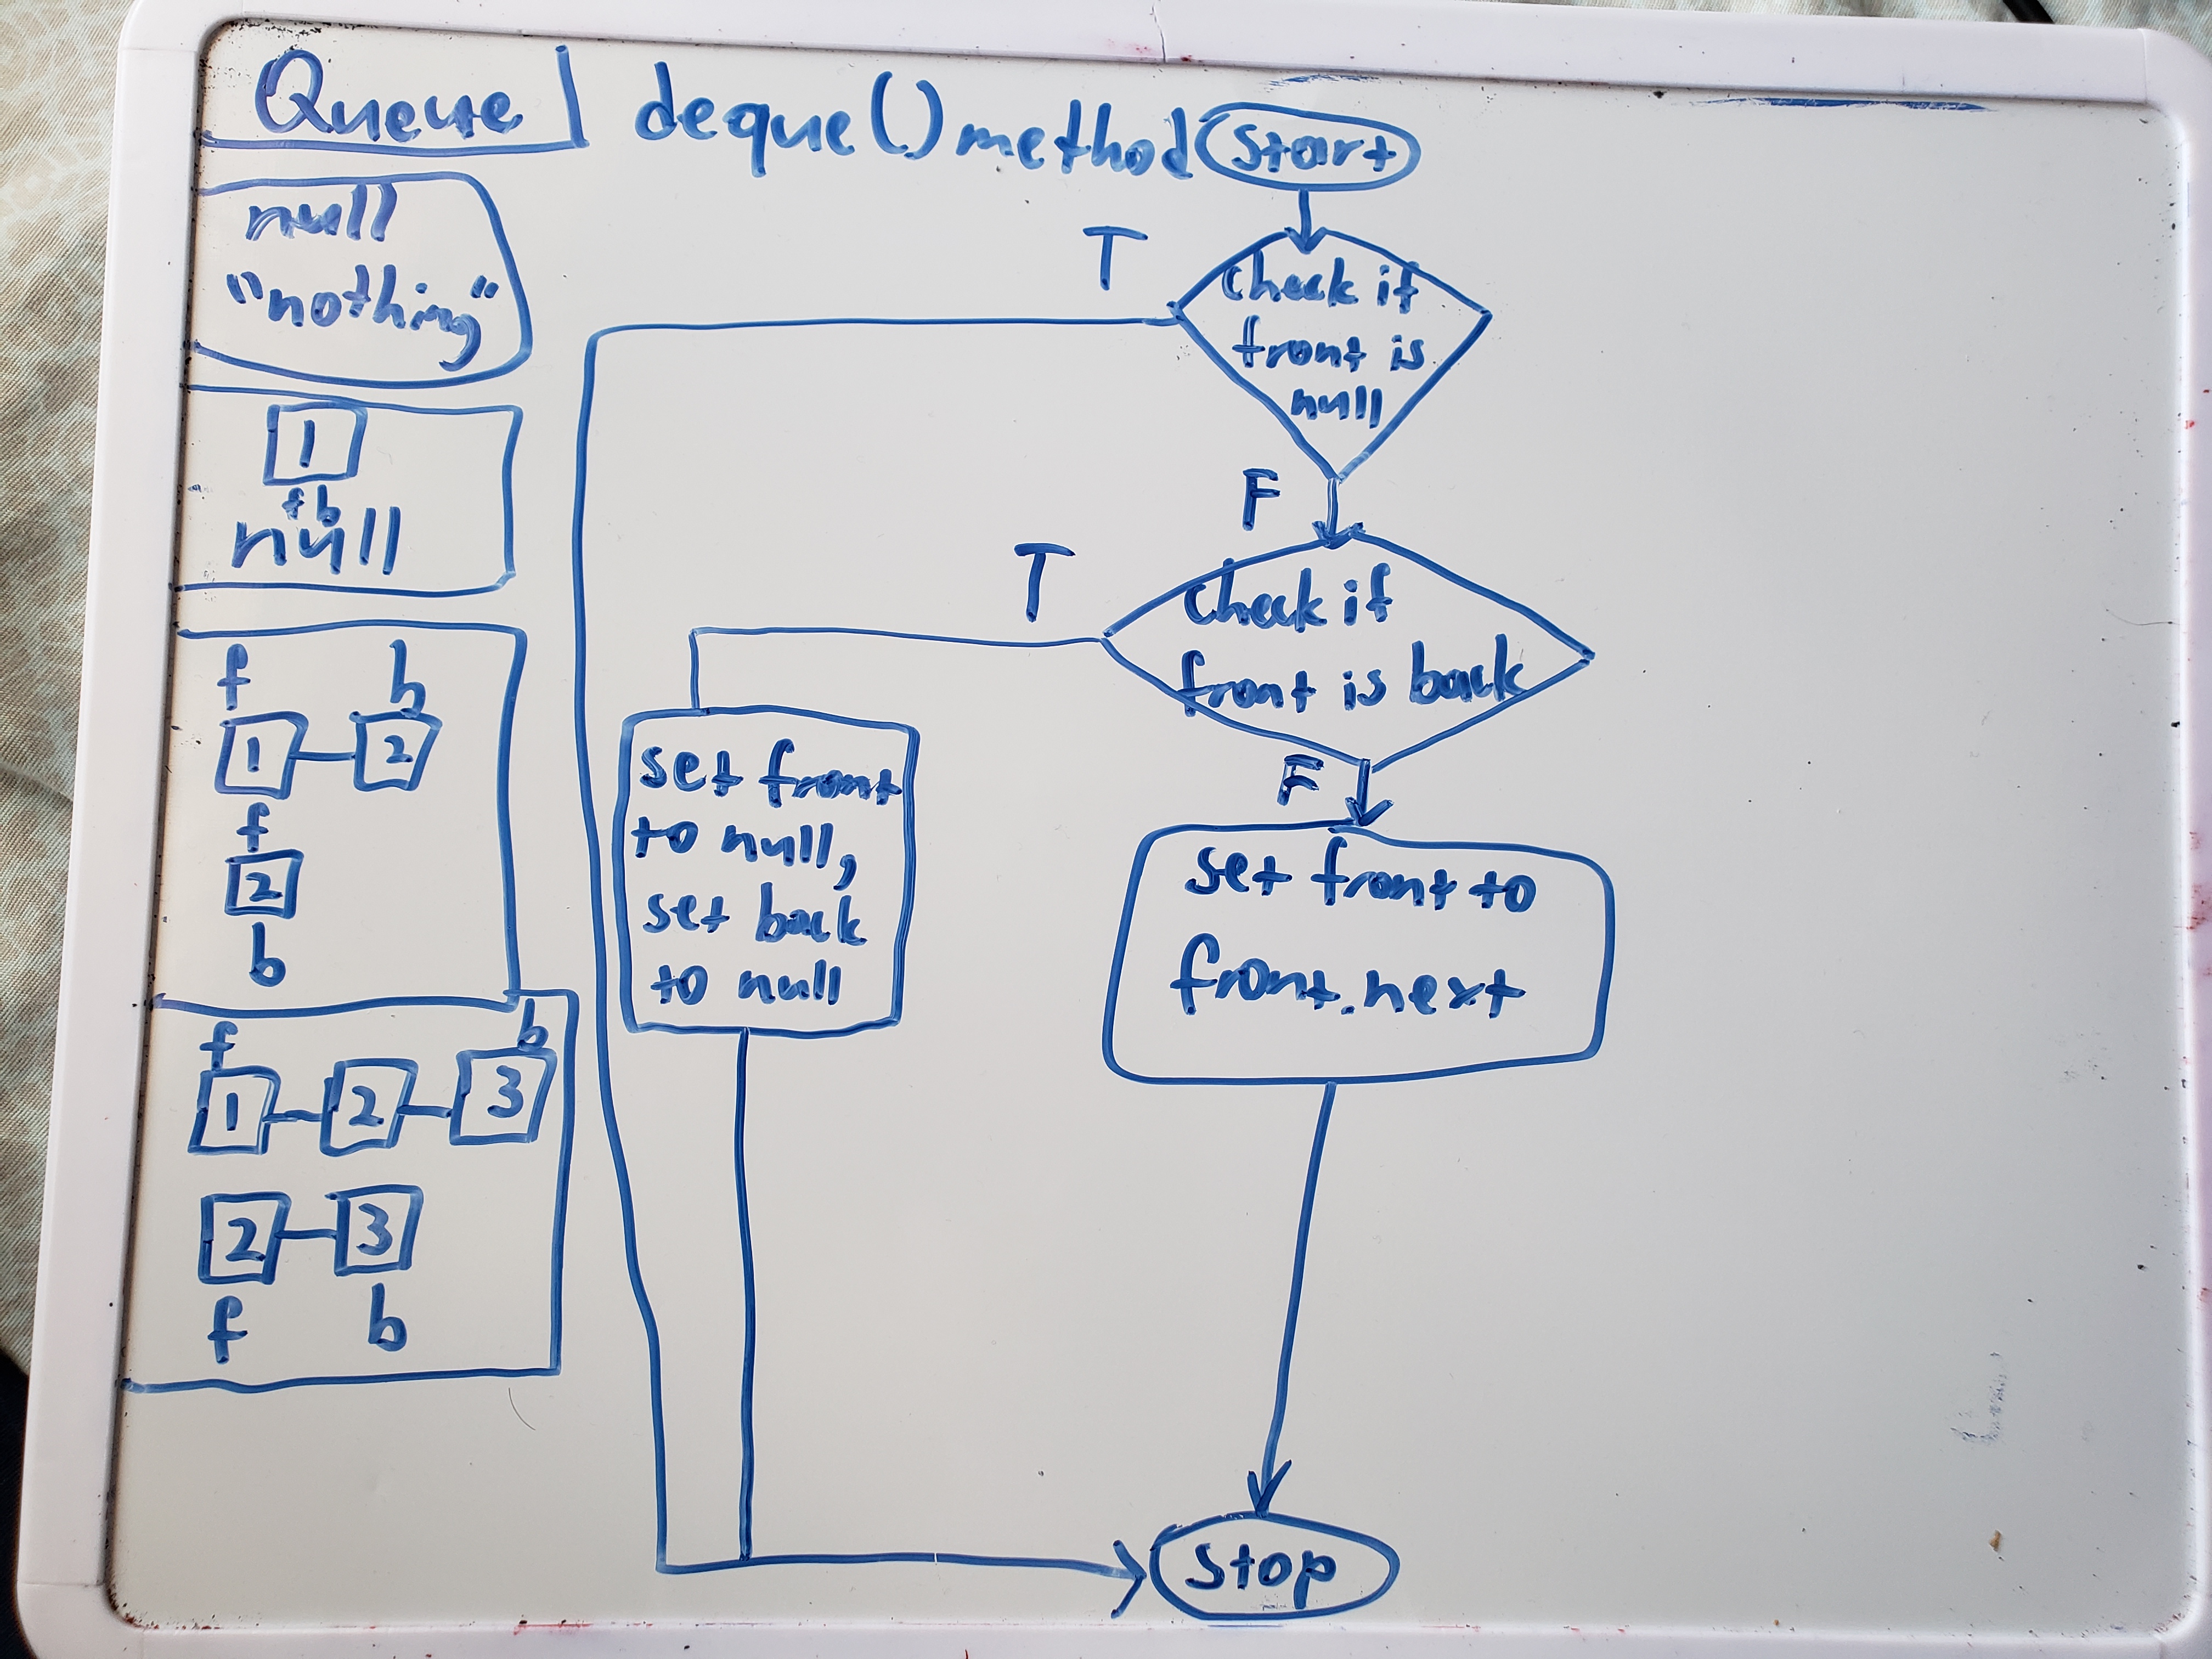 Queue
deque() method
null
"nothing"
1
f b
null
f b
1 2
f
2
b
f b
1 2 3
2 3
f b
start
T
check if
front is
null
F
T
check if
front is back
F
set front
to null,
set back
to null
set front to
front.next
stop